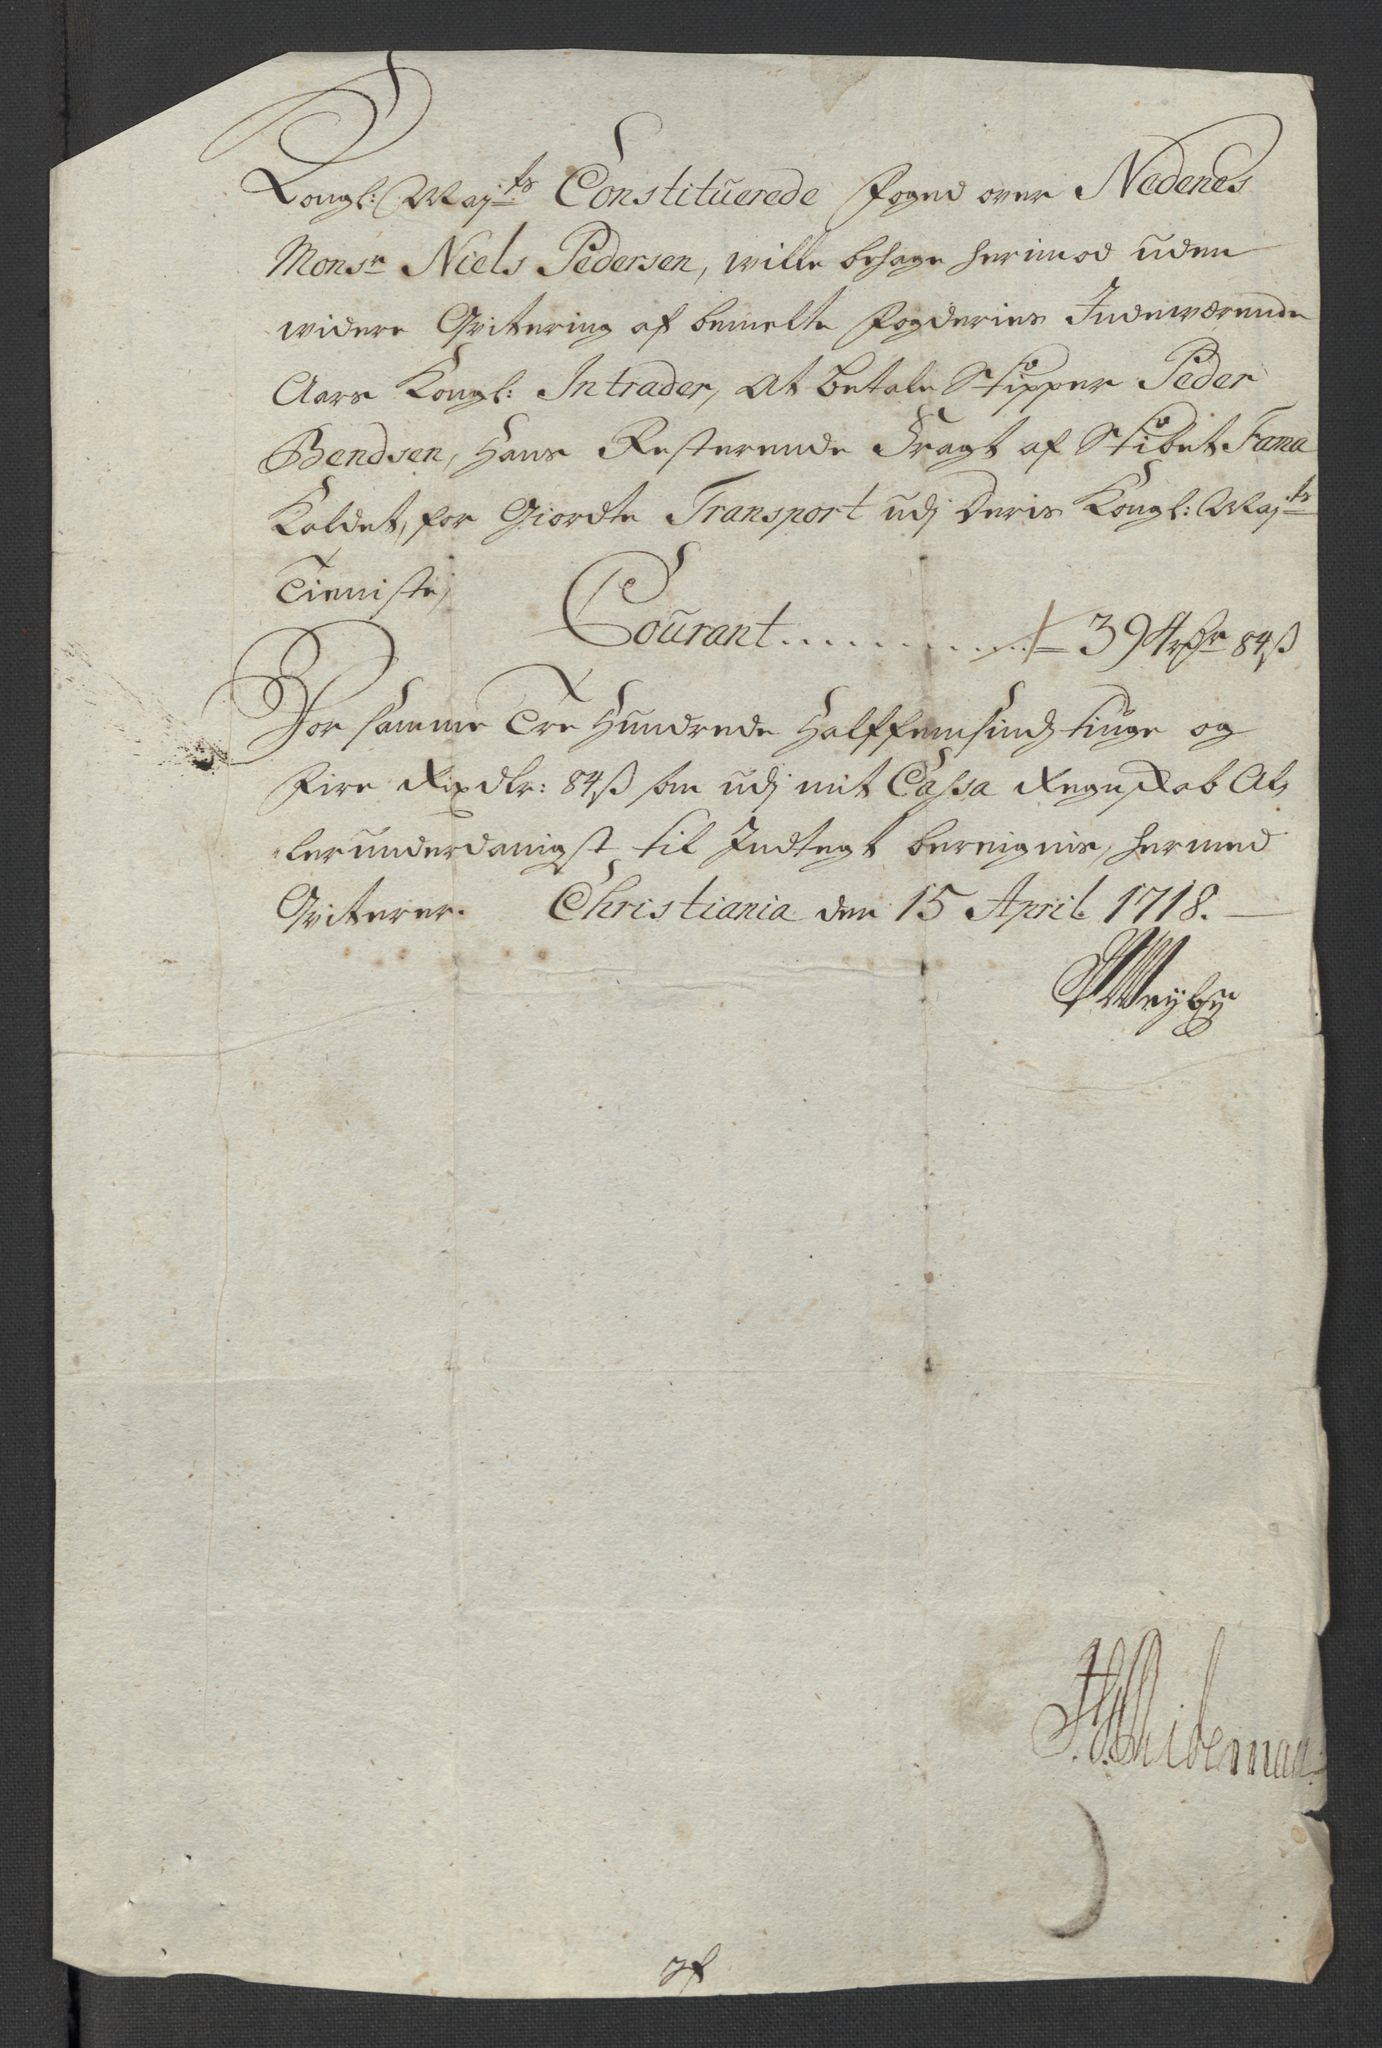 Kongl: Maj:ts Constituerede Foged over Nedenes
Monsr Niels Pedersen, wille behage herimod uden
widere Qvitering af bemelte Fogderies Indewærende
Aars Kongl: Intrader, At betale Skipper Peder
Bendsen, Hans Resterende Fragt af Skibet Fama
Kaldet, for Giordte Transport udj Deris Kongl: Maj:ts
Tieniste,
Courant . . . . . . . . . . 394 Rdr 84 ß
For samme Tre Hundrede Halffemsindz tiuge og
Fire Rixdlr: 84 ß som udj mit Cassa Regnskab Al,
lerunderdanigst til Indtegt bereignis, hermed
Qviterer. Christiania den 15 April 1718.